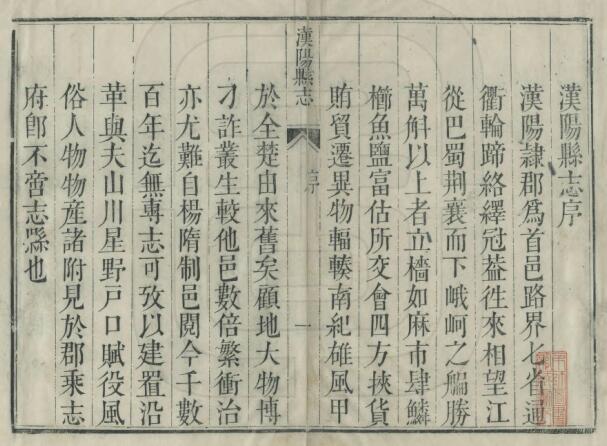 漢陽縣志序
漢陽隸郡爲首邑路界七省通
衢輪蹄絡繹冠葢徃來相望江
從巴蜀荆襄而下峨岢之艑勝
萬斛以上者立檣如麻市肆鱗
櫛魚鹽富估所交會四方挾貨
賄貿遷異物輻輳南紀雄風甲
漢陽縣志
序
一
於全楚由來舊矣顧地大物博
刁詐叢生較他邑數倍繁衝治
亦尤難自楊隋制邑閱今千數
百年迄無專志可攷以建置沿
革與夫山川星野戶口賦役風
俗人物物產諸附見於郡乘志
府卽不啻志縣也